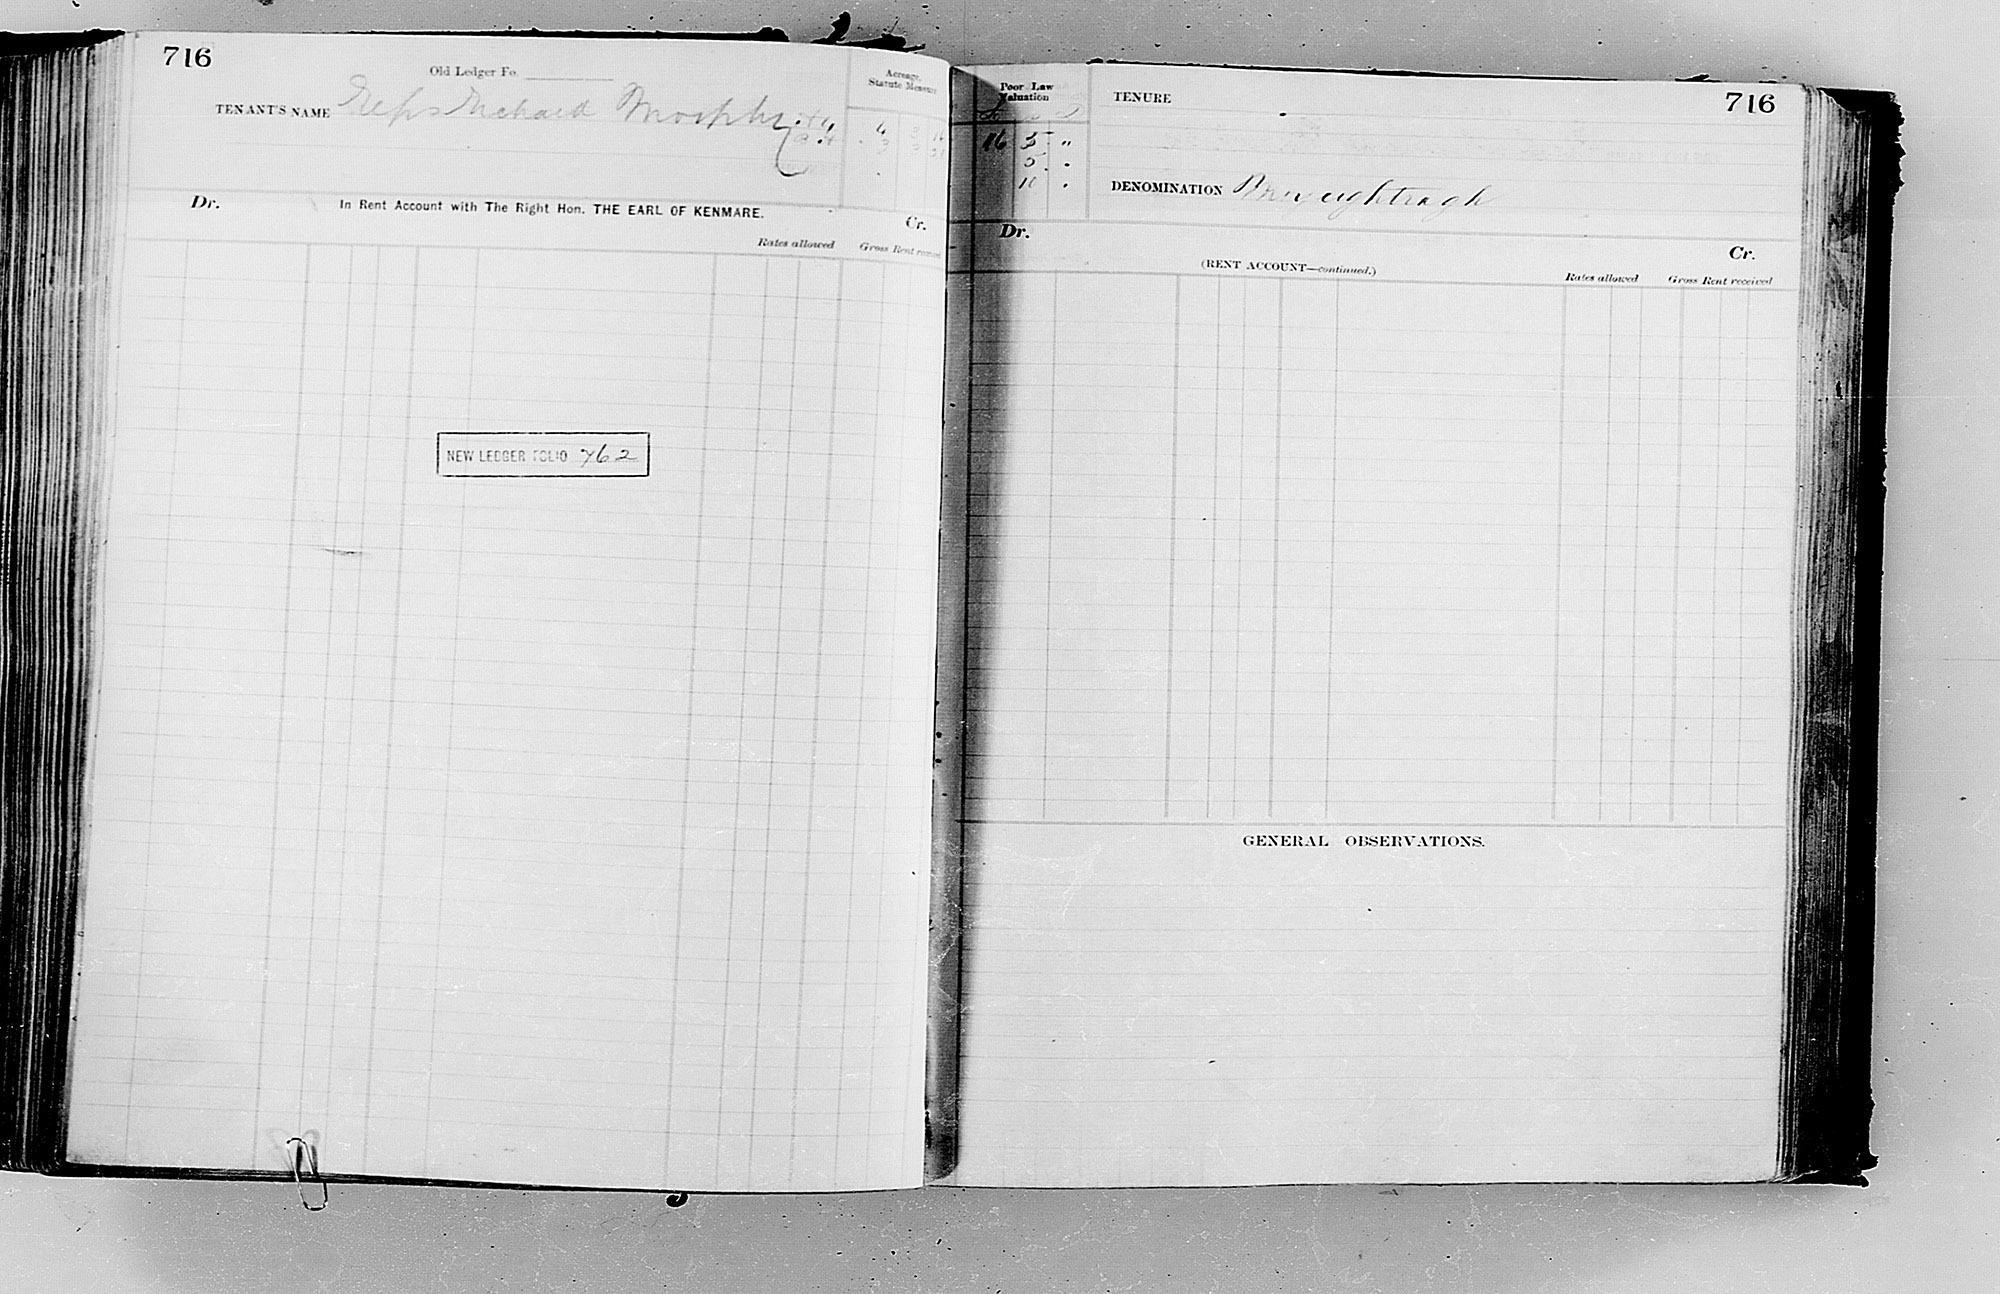 716
Old Ledger Fo.
TENANT'S NAME Reps Michael Murphy
Acreage,
Statute Measure
Dr. In Rent Account with The Right Hon. THE EARL OF KENMARE. Cr.
Rates allowed Gross Rent received
NEW LEDGER FOLIO 762
Poor Law
Valuation
TENURE 716
16 5 "
5 .
10 .
DENOMINATION
Dr. Cr.
(RENT ACCOUNT—continued.)
Rates allowed Gross Rent received
GENERAL OBSERVATIONS.